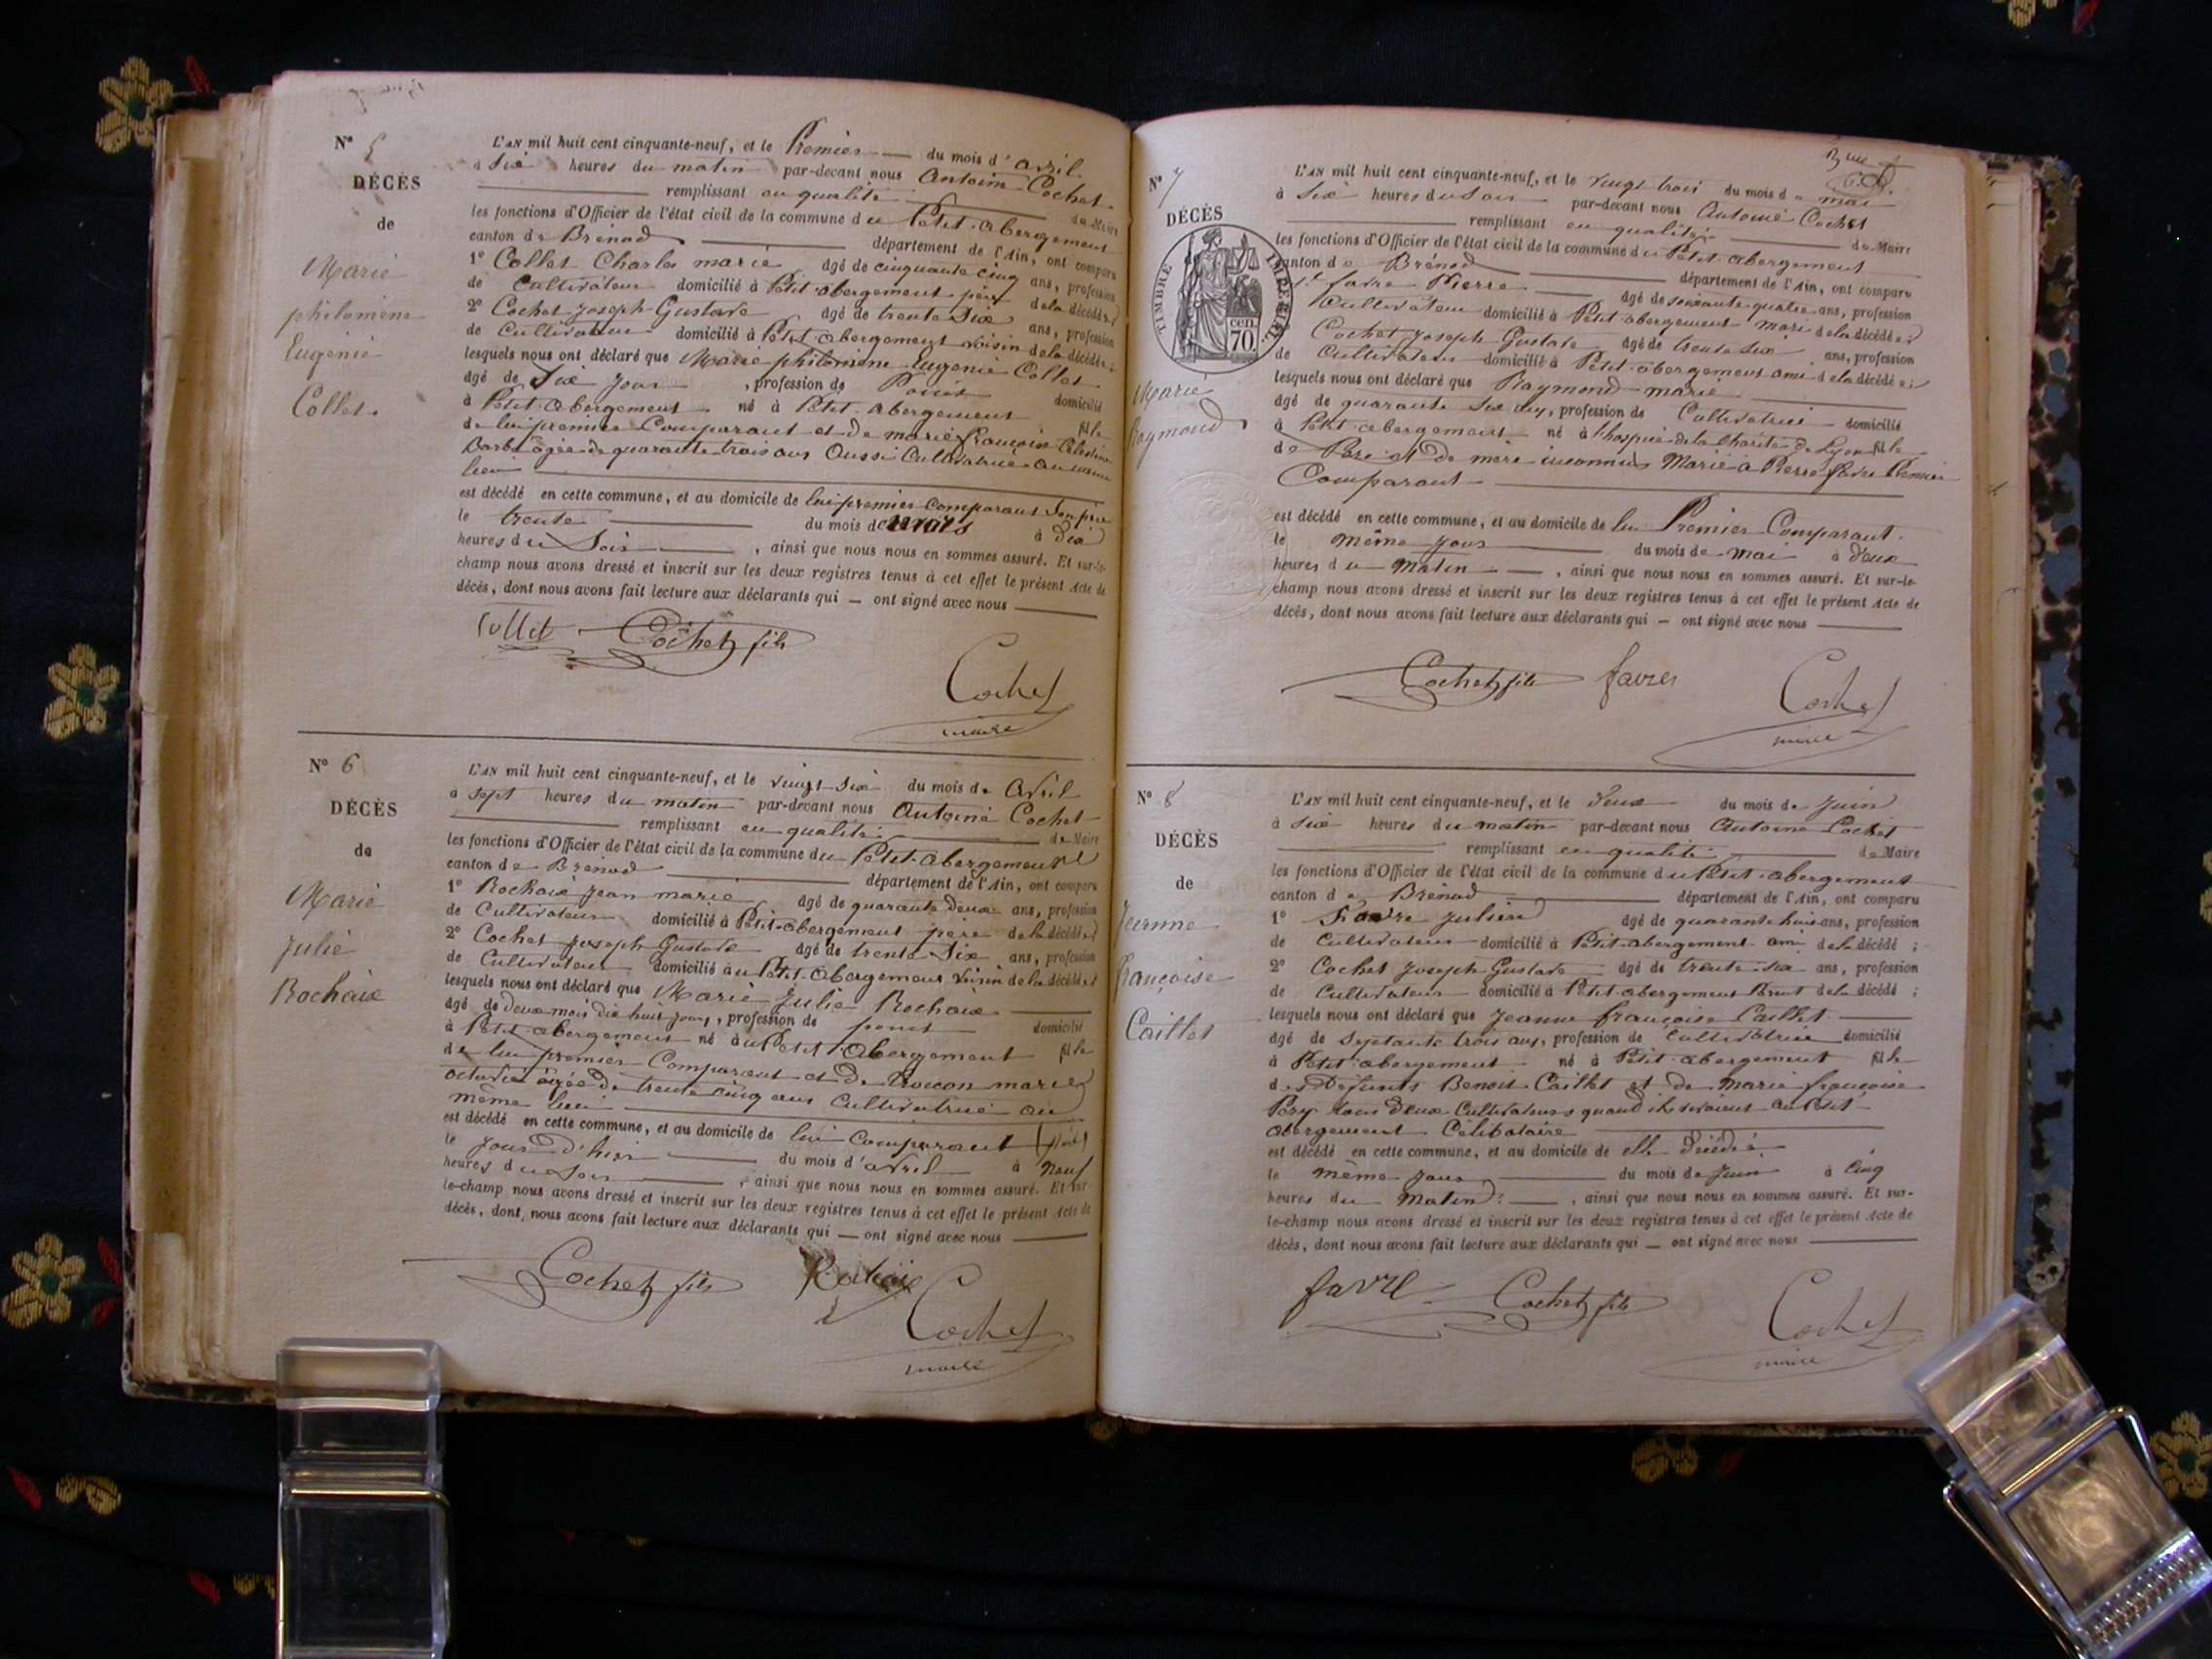 N° 5
DÉCÈS
de
Marie
philomène
Eugenie
Collet.
L'AN mil huit cent cinquante-neuf, et le Premier du mois d'avril
à Six heures du matin par-devant nous Antoine Cochet
remplissant en qualité de Maire
les fonctions d'Officier de l'état civil de la commune du Petit-abergement
canton de Brénod département de l'Ain, ont comparu
1° Collet Charles marie âgé de cinquante cinq ans, profession
de Cultivateur domicilié à Petit-abergement père de la décédée;
2° Cochet Joseph Gustave âgé de trente Six ans, profession
de Cultivateur domicilié à Petit-abergement voisin de la décédée;
lesquels nous ont déclaré que Marie philomène Eugenie Collet
âgé de Six jours, profession de domicilié
à Petit-abergement né à Petit-abergement fille
de lui premier Comparant et de marie françoise Célestine
Barbe âgée de quarante trois ans Aussi Cultivatrice au même
lieu
est décédé en cette commune, et au domicile de lui premier comparant Son père
le trente du mois de mars à dix
heures du Soir, ainsi que nous nous en sommes assuré. Et sur-le-
champ nous avons dressé et inscrit sur les deux registres tenus à cet effet le présent Acte de
décès, dont nous avons fait lecture aux déclarants qui — ont signé avec nous
Collet Cochet fils
Cochet
maire
N° 6
DÉCÈS
de
Marie
Julie
Rochaix
L'AN mil huit cent cinquante-neuf, et le vingt-six du mois de Avril
à sept heures du matin par-devant nous Antoine Cochet
remplissant en qualité de Maire
les fonctions d'Officier de l'état civil de la commune du Petit-abergement
canton de Brénod département de l'Ain, ont comparu
1° Rochaix Jean marie âgé de quarante deux ans, profession
de Cultivateur domicilié à Petit-abergement père de la décédée;
2° Cochet Joseph Gustave âgé de trente Six ans, profession
de Cultivateur domicilié au Petit-abergement voisin de la décédée;
lesquels nous ont déclaré que Marie Julie Rochaix
âgé de deux mois dix huit jours, profession de domicilié
à Petit-abergement né au Petit-abergement fille
de lui premier Comparant et de marie
octavie âgée de trente cinq ans Cultivatrice au
même lieu
est décédé en cette commune, et au domicile de lui Comparant
le jour d'hier du mois d'avril à Neuf
heures du Soir, ainsi que nous nous en sommes assuré. Et sur-
le-champ nous avons dressé et inscrit sur les deux registres tenus à cet effet le présent Acte de
décès, dont nous avons fait lecture aux déclarants qui — ont signé avec nous
Cochet fils Rochaix
Cochet
maire
N° 7
DÉCÈS
TIMBRE IMPÉRIAL
70 cen.
Marie
Raymond
L'AN mil huit cent cinquante-neuf, et le vingt trois du mois de mai
à Six heures du Soir par-devant nous Antoine Cochet
remplissant en qualité de Maire
les fonctions d'Officier de l'état civil de la commune du Petit-abergement
canton de Brénod département de l'Ain, ont comparu
1° favre Pierre âgé de soixante quatre ans, profession
Cultivateur domicilié à Petit-abergement mari de la décédée;
Cochet Joseph Gustave âgé de trente Six ans, profession
de Cultivateur domicilié à Petit-abergement ami de la décédée;
lesquels nous ont déclaré que Raymond marie
âgé de quarante Six ans, profession de Cultivatrice domicilié
à Petit-abergement né à l'hospice de la Charité de Lyon fille
de Père et de mère inconnus Marié à Pierre favre Premier
Comparant
est décédé en cette commune, et au domicile de lui Premier Comparant.
le même jour du mois de mai à deux
heures du Matin, ainsi que nous nous en sommes assuré. Et sur-le-
champ nous avons dressé et inscrit sur les deux registres tenus à cet effet le présent Acte de
décès, dont nous avons fait lecture aux déclarants qui — ont signé avec nous
Cochet fils favre
Cochet
maire
N° 8
DÉCÈS
de
Jeanne
françoise
Caillet
L'AN mil huit cent cinquante-neuf, et le deux du mois de Juin
à six heures du matin par-devant nous Antoine Cochet
remplissant en qualité de Maire
les fonctions d'Officier de l'état civil de la commune du Petit-abergement
canton de Brénod département de l'Ain, ont comparu
1° Favre Julien âgé de quarante huit ans, profession
de Cultivateur domicilié à Petit-abergement ami de la décédé;
2° Cochet Joseph Gustave âgé de trente six ans, profession
de Cultivateur domicilié à Petit-abergement de la décédé;
lesquels nous ont déclaré que Jeanne françoise Caillet
âgé de Septante trois ans, profession de Cultivatrice domicilié
à Petit-abergement né à Petit-abergement fille
des Defunts Benoit Caillet et de Marie françoise
Pery tous deux Cultivateurs quand ils vivaient au Petit-
abergement Célibataire
est décédé en cette commune, et au domicile de elle Décédée
le même jour du mois de Juin à Cinq
heures du Matin, ainsi que nous nous en sommes assuré. Et sur-
le-champ nous avons dressé et inscrit sur les deux registres tenus à cet effet le présent Acte de
décès, dont nous avons fait lecture aux déclarants qui — ont signé avec nous
favre Cochet fils
Cochet
maire